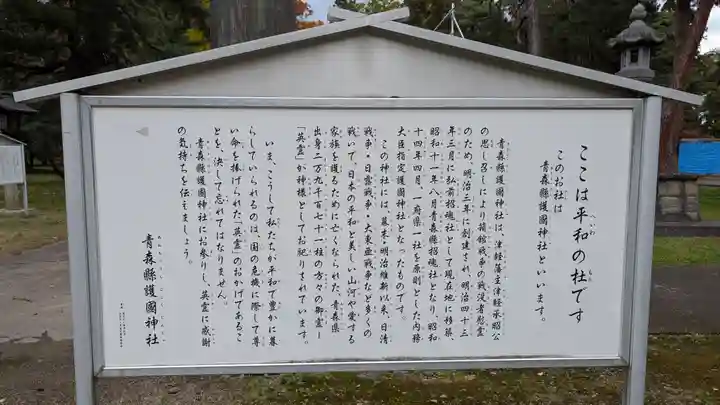 ここは平和の杜です
このお社は
青森縣護國神社といいます。
青森縣護國神社は、津軽藩主津軽承昭公
の思し召しにより箱館戦争の戦没者慰霊
のため、明治三年に創建され、明治四十三
年三月に弘前招魂社として現在地に移築、
昭和十一年八月青森縣招魂社となり、昭和
十四年四月、一府県一社を原則とした内務
大臣指定護國神社となったものです。
この神社には、幕末・明治維新以来、日清
戦争・日露戦争・大東亜戦争など多くの
戦いで、日本の平和と美しい山河や愛する
家族を護るために亡くなられた、青森県
出身二万九千百七十一柱の方々の御霊ー
「英霊」が神様としてお祀りされています。
いま、こうして私たちが平和で豊かに暮
らしていられるのは、国の危機に際して尊
い命を捧げられた「英霊」のおかげであるこ
とを、決して忘れてはなりません。
青森縣護國神社にお参りし、英霊に感謝
の気持ちを伝えましょう。
青森縣護國神社